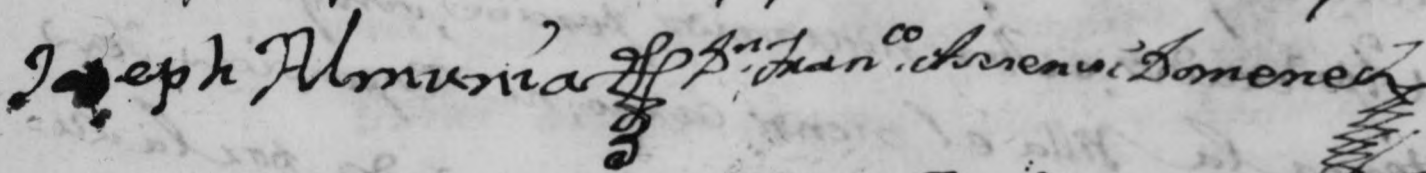 Joseph Almunia Dn. Franco. Asensi Domenech